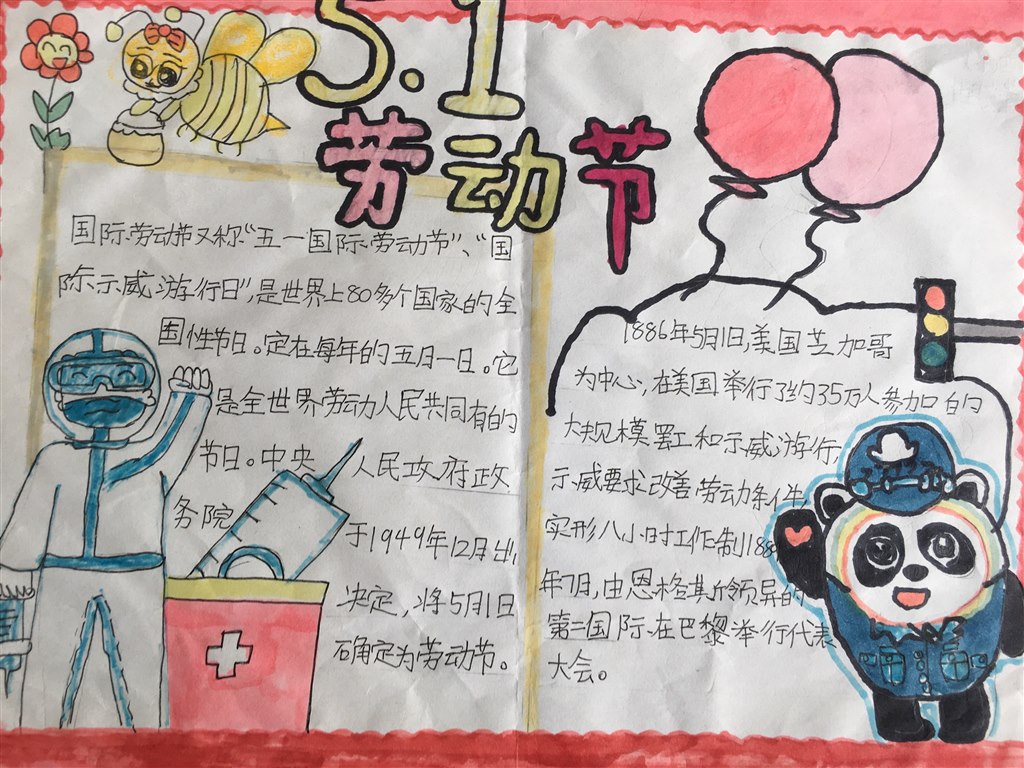 5.1
劳动节
国际劳动节又称"五一国际劳动节"、"国
际示威游行日",是世界上80多个国家的全
国性节日。定在每年的五月一日。它
是全世界劳动人民共同有的
节日。中央 人民政府政
务院
于1949年12月出
决定,将5月1日
确定为劳动节。
1886年5月1日,美国芝加哥
为中心,在美国举行了约35万人参加的
大规模罢和示威游行,
示威要求改善劳动条件,
实形八小时工作制188
年7月,由恩格斯领导的
第二国际在巴黎举行代表
大会。